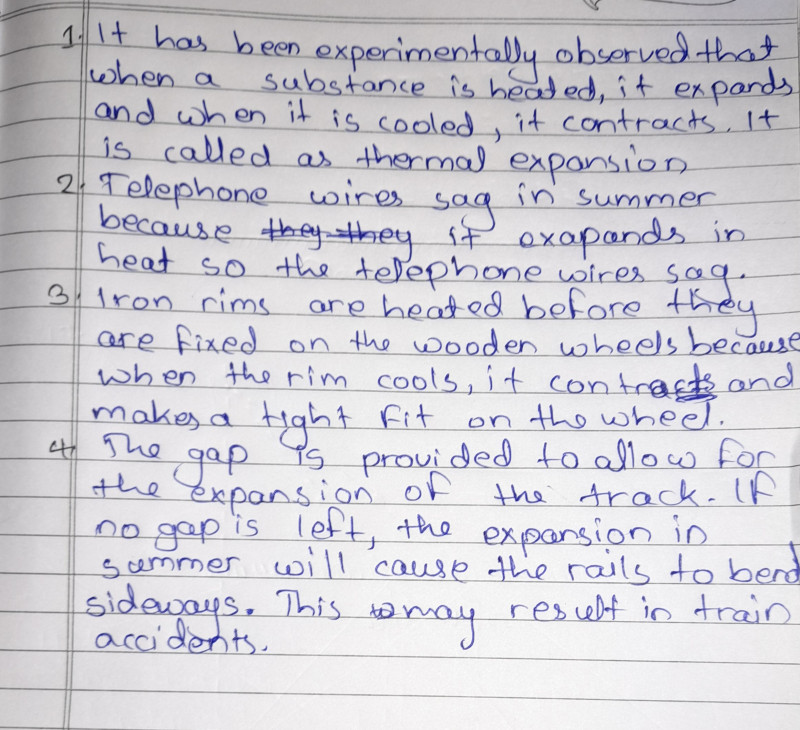 1. It has been experimentally observed that
when a substance is heated, it expands
and when it is cooled, it contracts. It
is called as thermal expansion
2. Telephone wires sag in summer
because they they it exapands in
heat so the telephone wires sag.
3. Iron rims are heated before they
are fixed on the wooden wheels because
when the rim cools, it contracts and
makes a tight fit on the wheel.
4. The gap is provided to allow for
the expansion of the track. If
no gap is left, the expansion in
summer will cause the rails to bend
sideways. This may result in train
accidents.